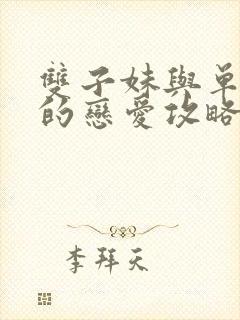 雙子妹與單
的戀愛攻略
李拜天